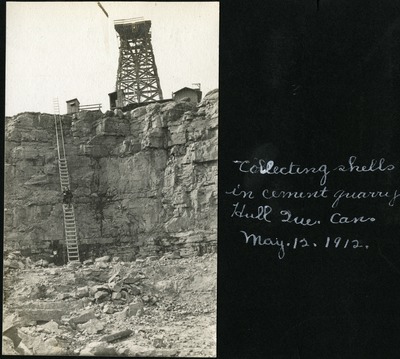 Collecting shells
in cement quarry
Hull Que. Can.
May. 12. 1912.